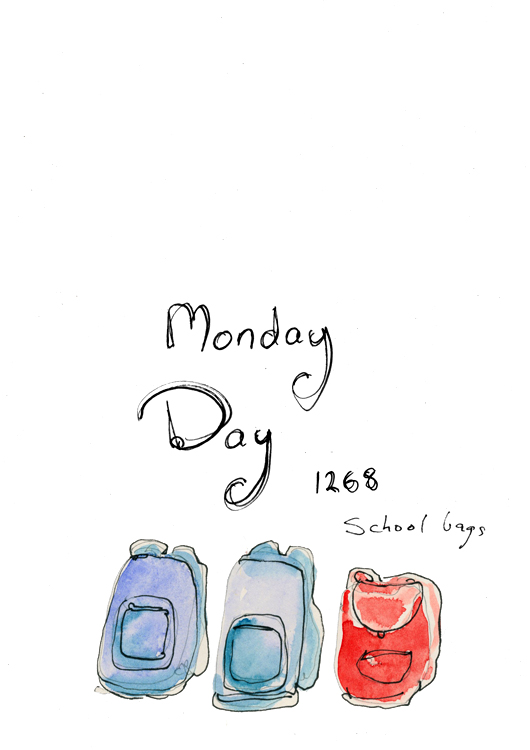 Monday
Day
1268
School bags